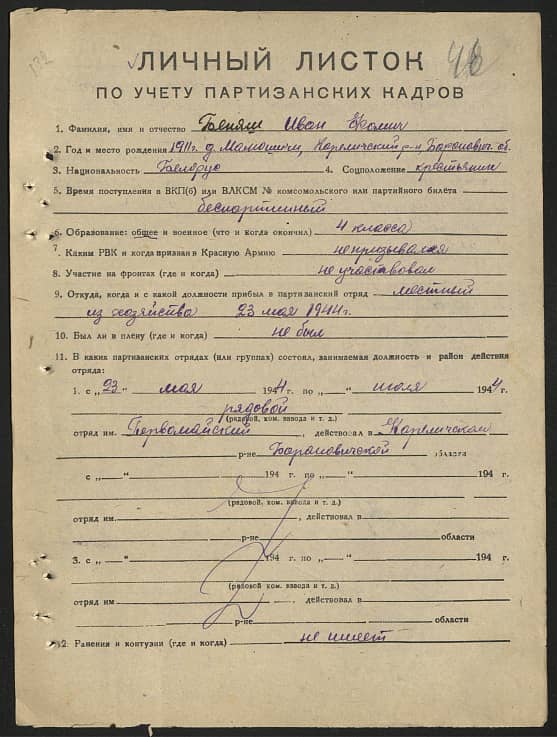 132
46
ЛИЧНЫЙ ЛИСТОК
ПО УЧЕТУ ПАРТИЗАНСКИХ КАДРОВ
1. Фамилия, имя и отчество Иван
2. Год и место рождения 1911г. д. Кареличский р-н Баранович. об.
3. Национальность Белорус 4. Соцположение крестьянин
5. Время поступления в ВКП(б) или ВЛКСМ № комсомольского или партийного билета
беспартийный
6. Образование: общее и военное (что и когда окончил) 4 класса
7. Каким РВК и когда призван в Красную Армию не призывался
8. Участие на фронтах (где и когда) не участвовал
9. Откуда, когда и с какой должности прибыл в партизанский отряд местный
из хозяйства 23 мая 1944г.
10. Был ли в плену (где и когда) не был
11. В каких партизанских отрядах (или группах) состоял, занимаемая должность и район действия
отряда:
1. с „23" мая 1944 г. по „ " июля 1944 г.
рядовой
(рядовой, ком. взвода и т. д.)
отряд им. Первомайский , действовал в Кареличском
р-не Барановичской области
с „ " 194 г. по „ " 194 г.
(рядовой, ком. взвода и т. д.)
отряд им. , действовал в
р-не области
3. с „ " 194 г. по „ " 194 г.
(рядовой, ком. взвода и т. д.)
отряд им , действовал в
р-не области
2. Ранения и контузии (где и когда) не имеет